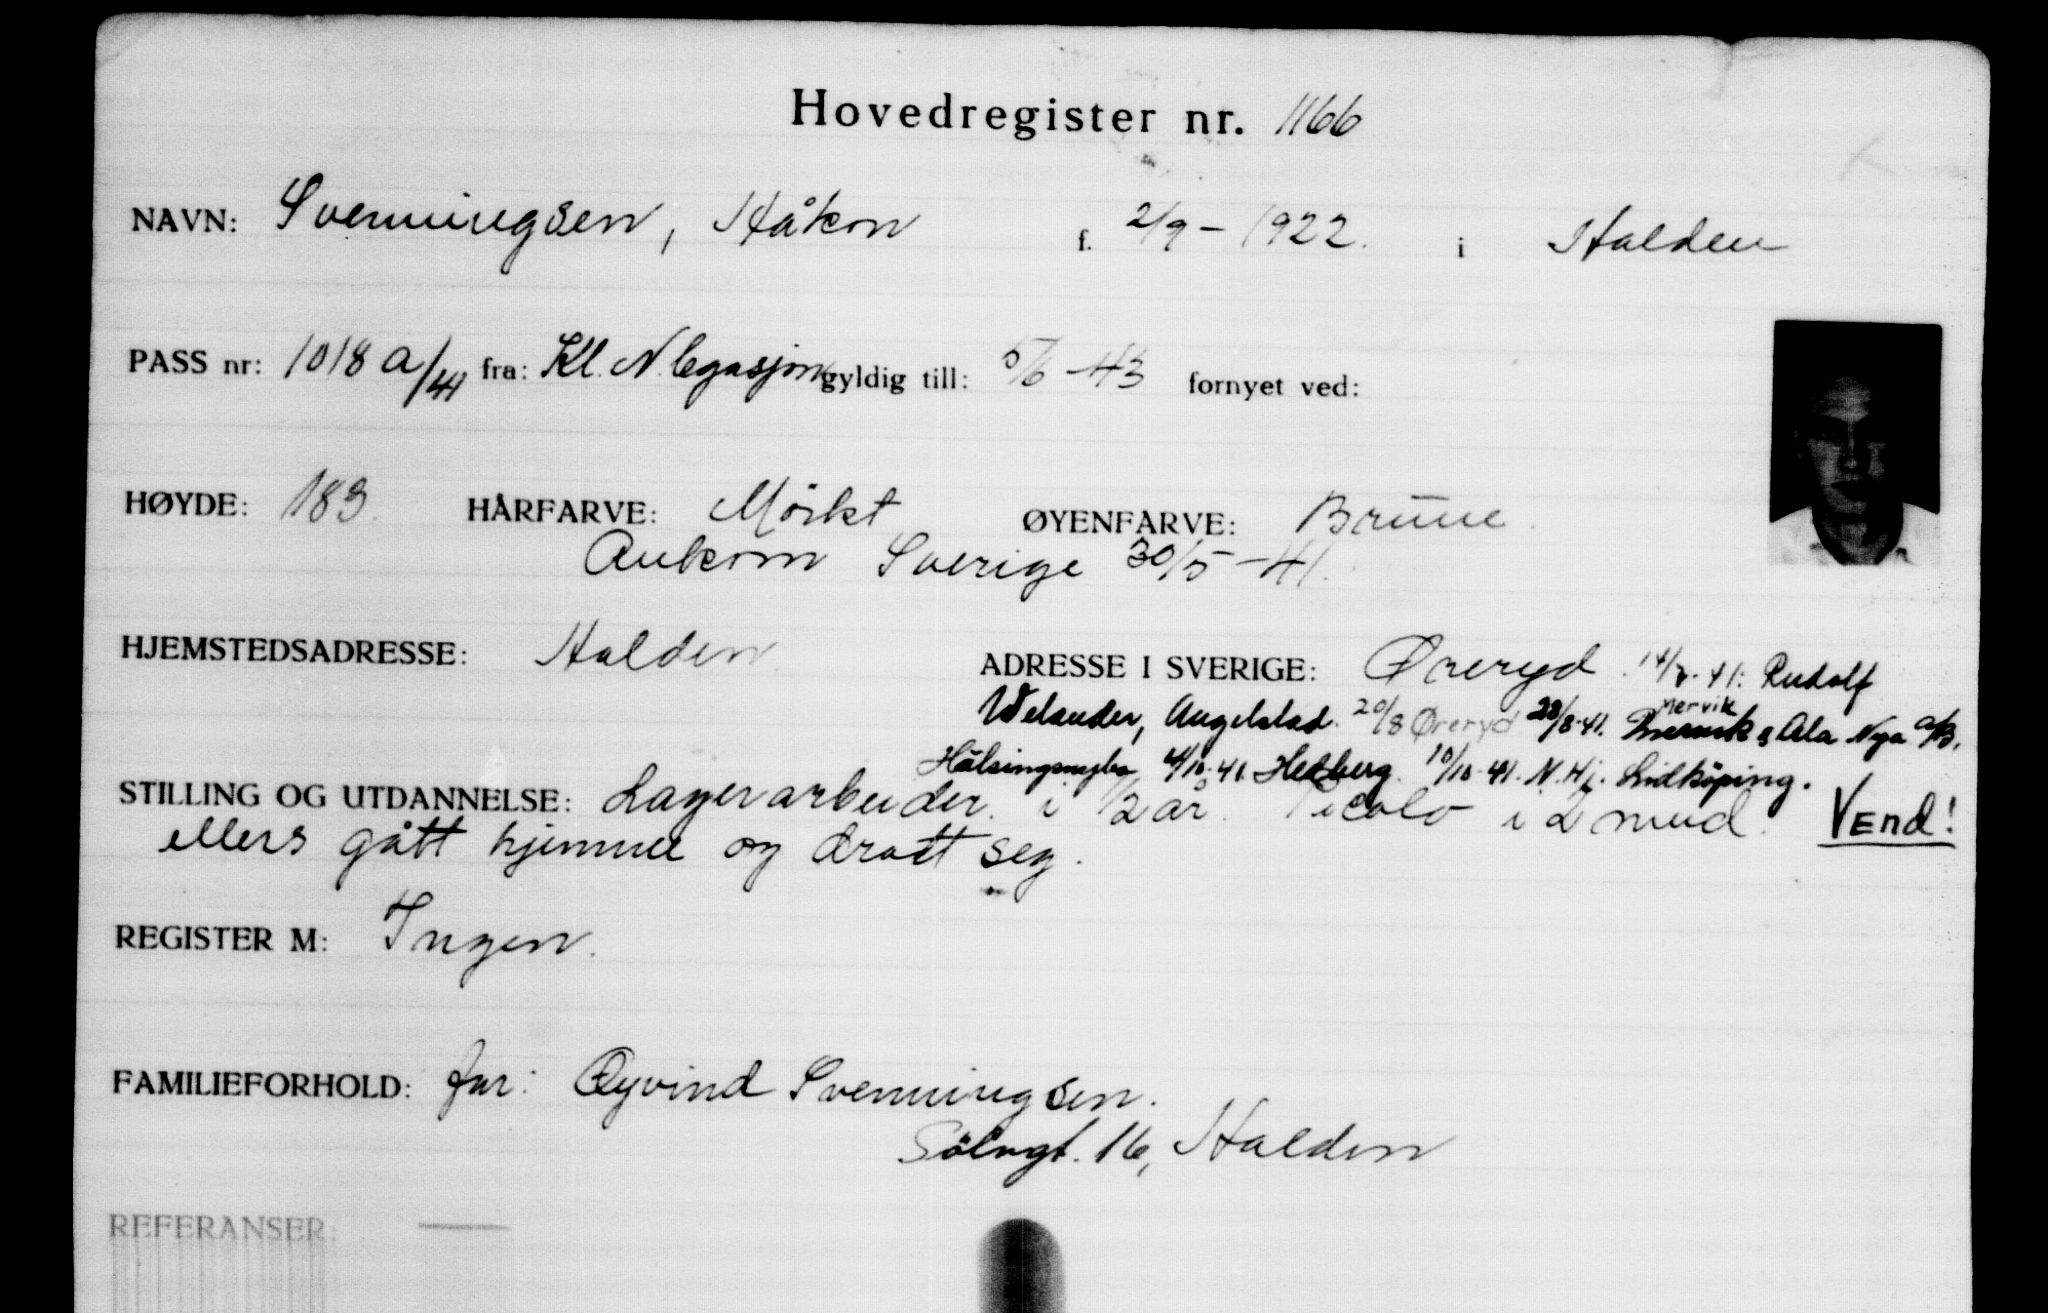 Hovedregister nr. 1166
NAVN: Svenningsen, Håkon f. 2/9 - 1922. i Halden
PASS nr: 1018 a/41 fra: Kl. N. legasjon gyldig till: 5/6 - 43 fornyet ved:
HØYDE: 183. HÅRFARVE: Mörkt ØYENFARVE: Brune
Ankom Sverige 30/5 - 41.
HJEMSTEDSADRESSE: Halden ADRESSE I SVERIGE: Øreryd. 41: Rudolf
Welander, Angelstad. 20/8 Øreryd 28/8-41. Mervik & Ala Nya A/B.
4/10-41. Hedberg. 10/10-41. N. Hj. Lidköping.
STILLING OG UTDANNELSE: Lagerarbeider. i 1/2 år. Picolo i 2 mnd. VEnd!
ellers gått hjemme og dradt seg.
REGISTER M: Ingen.
FAMILIEFORHOLD: far: Øyvind Svenningsen.
16, Halden
REFERANSER: —